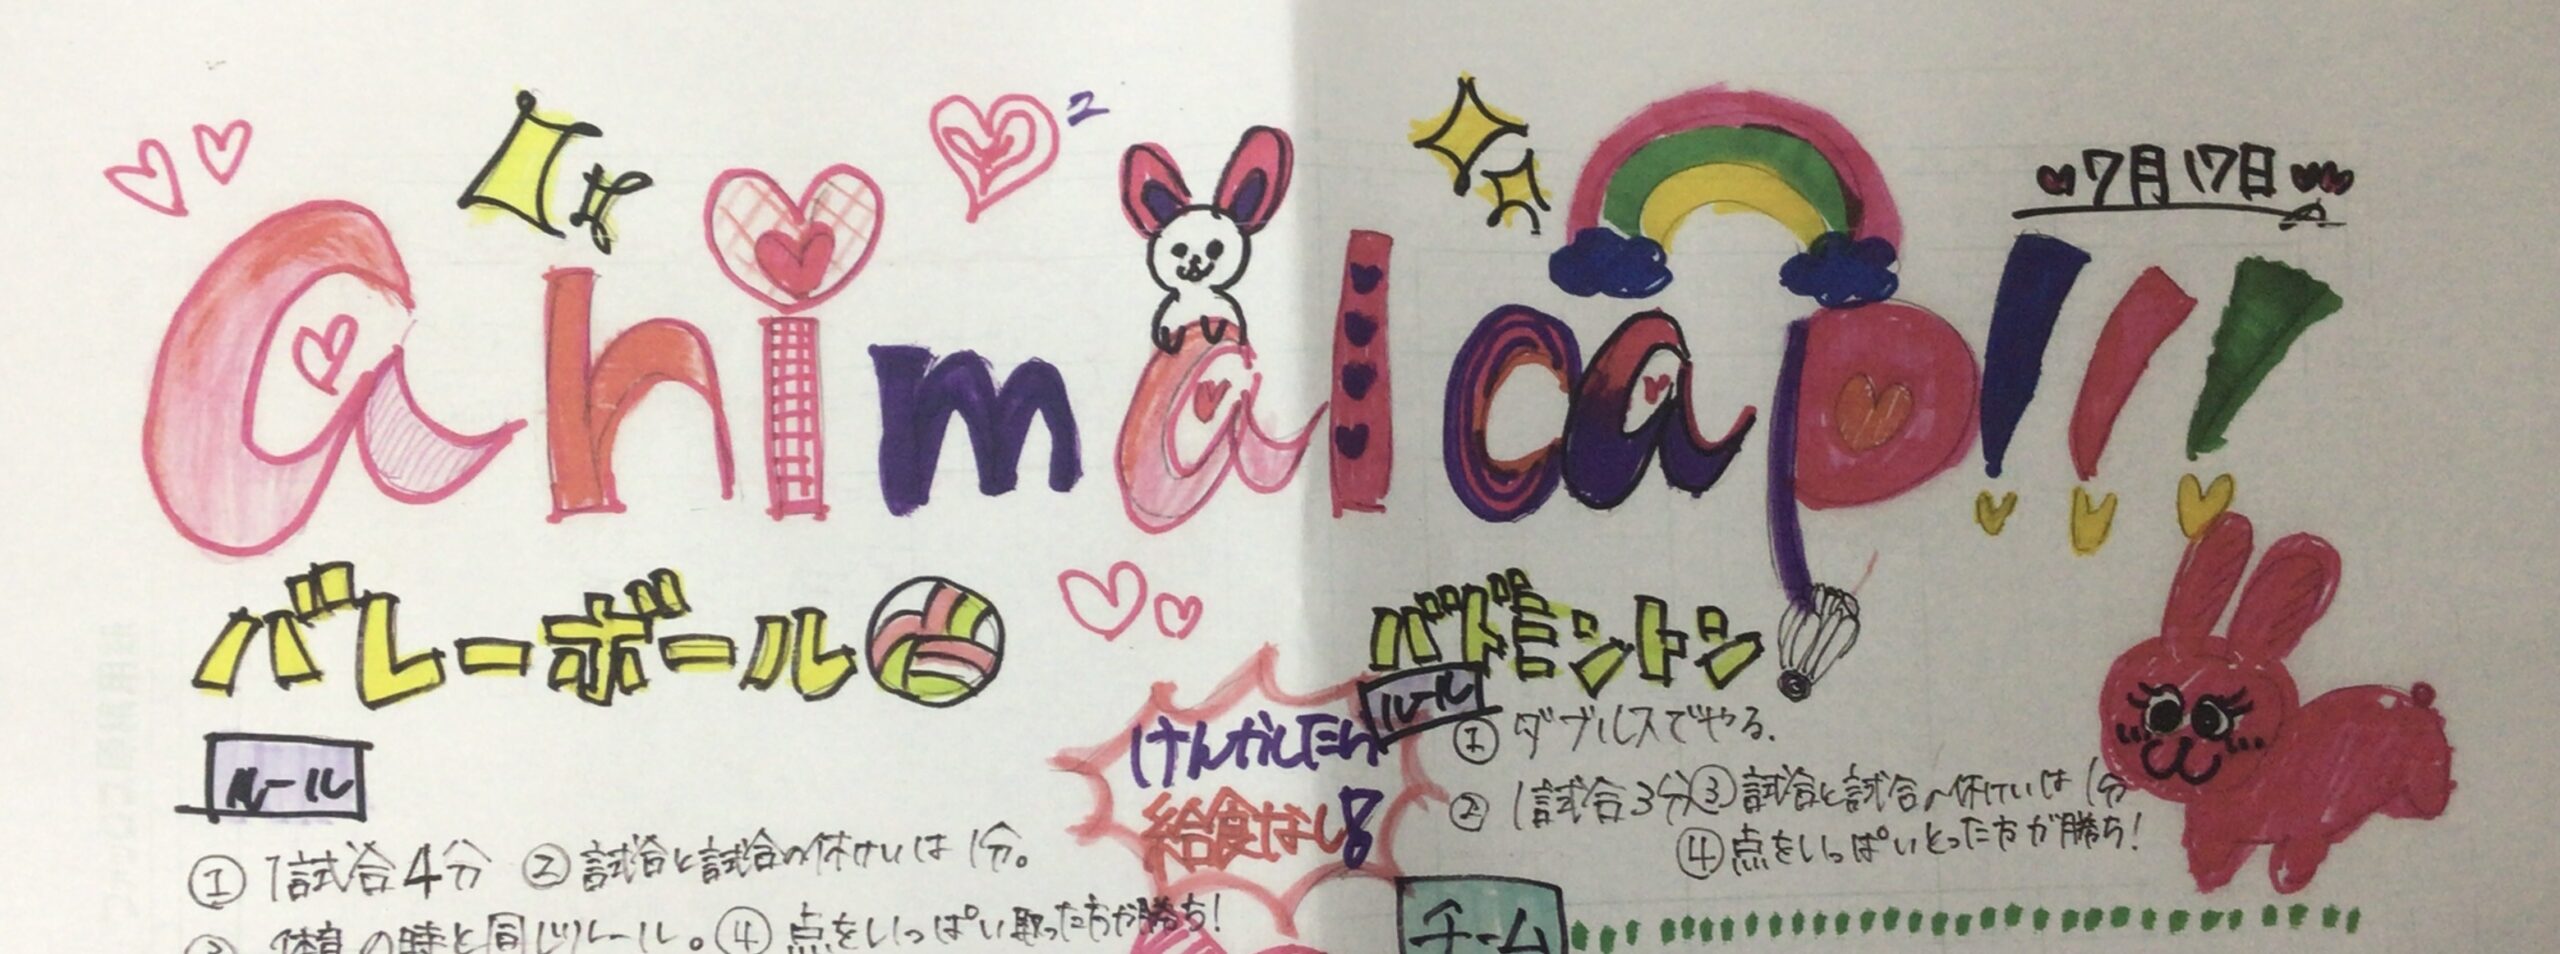 7月17日
animal cap!!!
バレーボール
ルール
① 1試合4分 ② 試合と試合の休けいは1分。
③ 体育の時と同じルール。④ 点をいっぱい取った方が勝ち!
けんかしたら
給食なし!
バドミントン
ルール
① ダブルスでやる.
② 1試合3分 ③ 試合と試合の休けいは1分
④ 点をいっぱいとった方が勝ち!
チーム